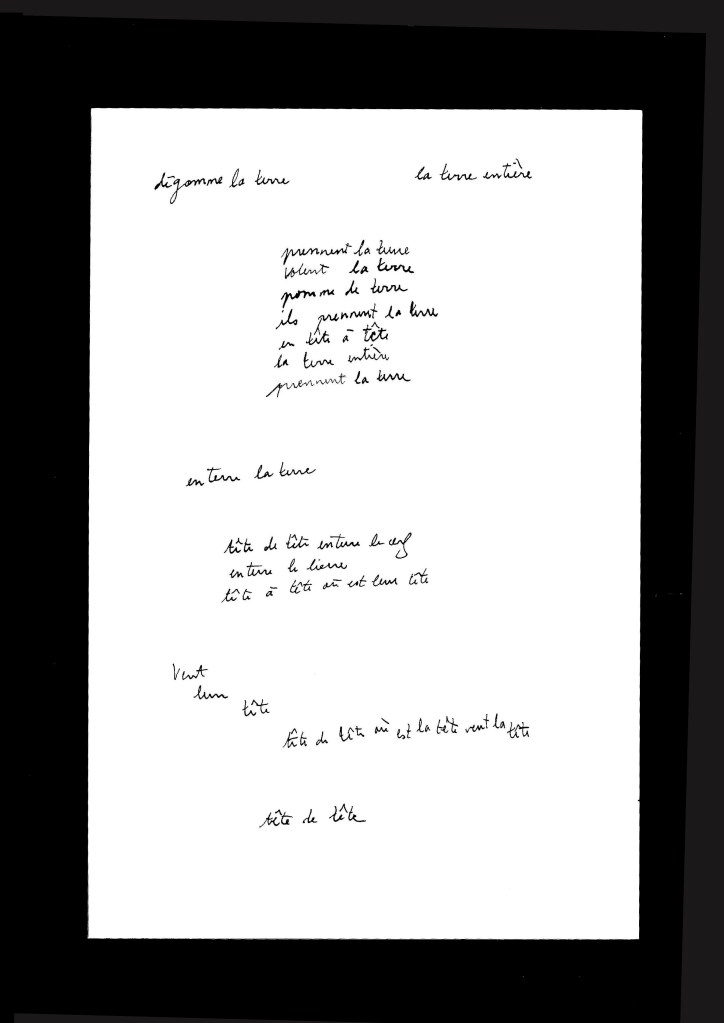 dégomme la terre la terre entière
prennent la terre
volent la terre
pomme de terre
ils prennent la terre
en tête à tête
la terre entière
prennent la terre
enterre la terre
tête de tête enterre le cerf
enterre le lierre
tête à tête où est leur tête
Vent
leur
tête
tête de tête où est la tête vent la tête
tête de tête